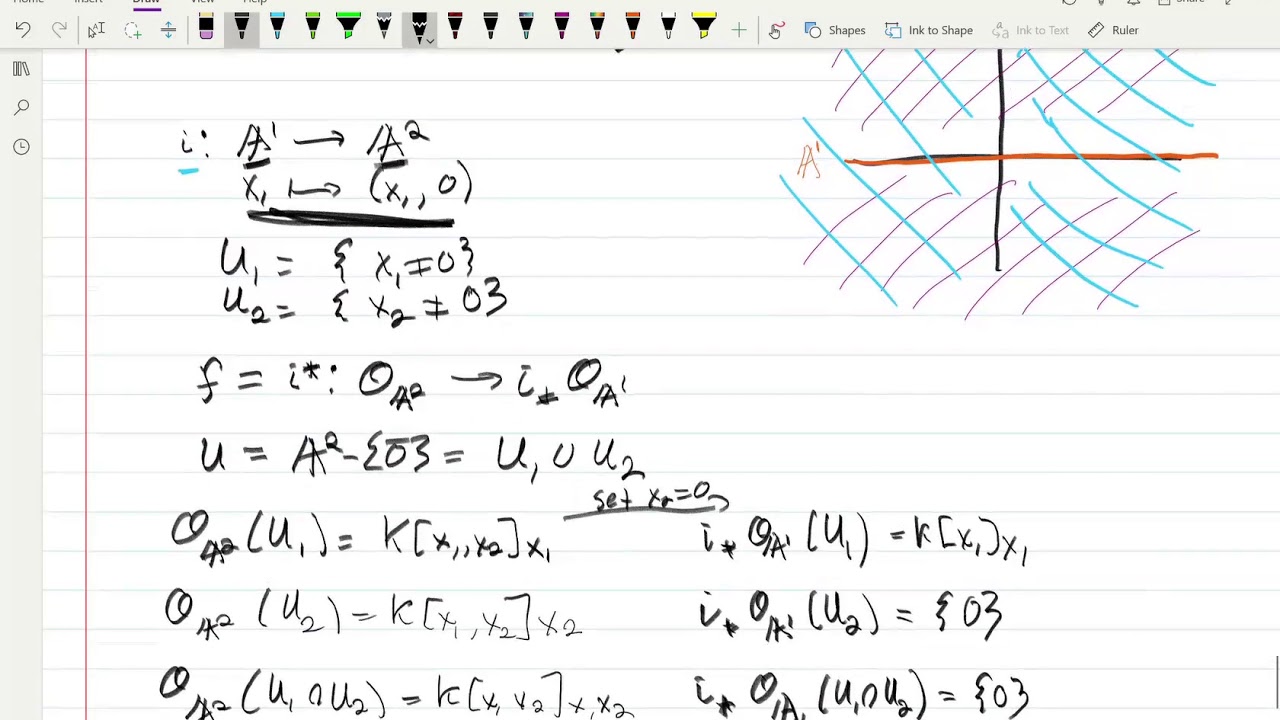 Home Insert Draw View
Shapes Ink to Shape Ink to Text Ruler
i: 𝔸¹ → 𝔸²
x₁ ↦ (x₁, 0)
𝔸¹
U₁ = { x₁ ≠ 0}
U₂ = { x₂ ≠ 0}
f = i*: 𝒪_𝔸² → i_* 𝒪_𝔸¹
U = 𝔸² - {0̅} = U₁ ∪ U₂
set x₂=0
𝒪_𝔸² (U₁) = K[x₁,x₂]_x₁ i_* 𝒪_𝔸¹ (U₁) = K[x₁]_x₁
𝒪_𝔸² (U₂) = K[x₁,x₂]_x₂ i_* 𝒪_𝔸¹ (U₂) = {0}
𝒪_𝔸² (U₁∩U₂) = K[x₁x₂]_x₁x₂ i_* 𝒪_𝔸¹ (U₁∩U₂) = {0}